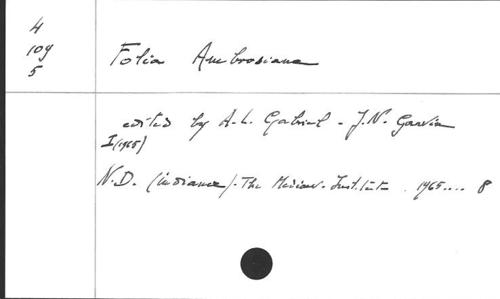 4
109
5
Folia Ambrosiana
edited by A.L. Gabriel - J.N. Garvin
I (1965)
N.D. (Indiana) - The Mediaev. Institute . 1965.... 8